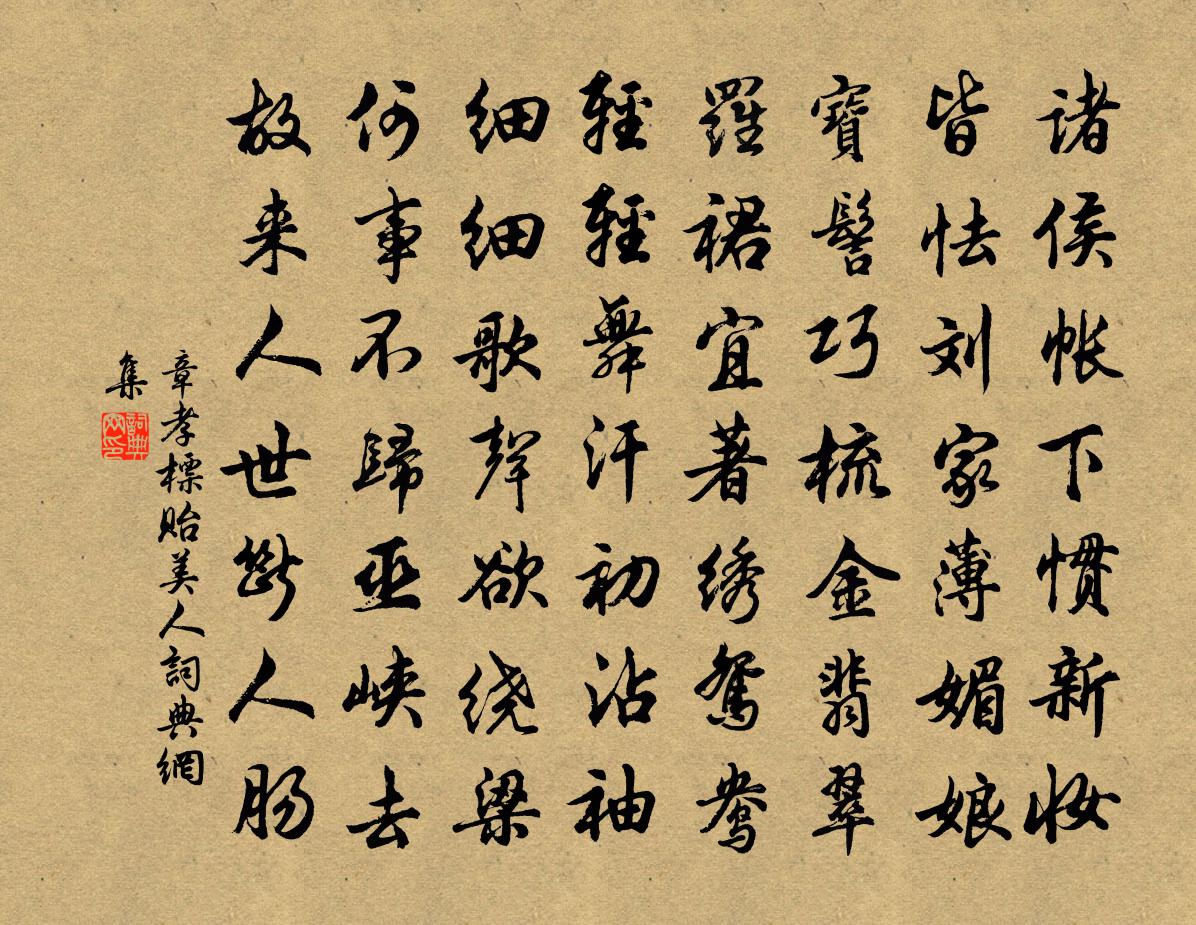 诸侯帐下惯新妆
皆怯刘家薄媚娘
寶髻巧梳金翡翠
羅裙宜著绣鴛鴦
輕輕舞汗初沾袖
细细歌聲欲绕梁
何事不歸巫峡去
故来人世斷人肠
章孝標貽美人詞典網
集
詞典網印